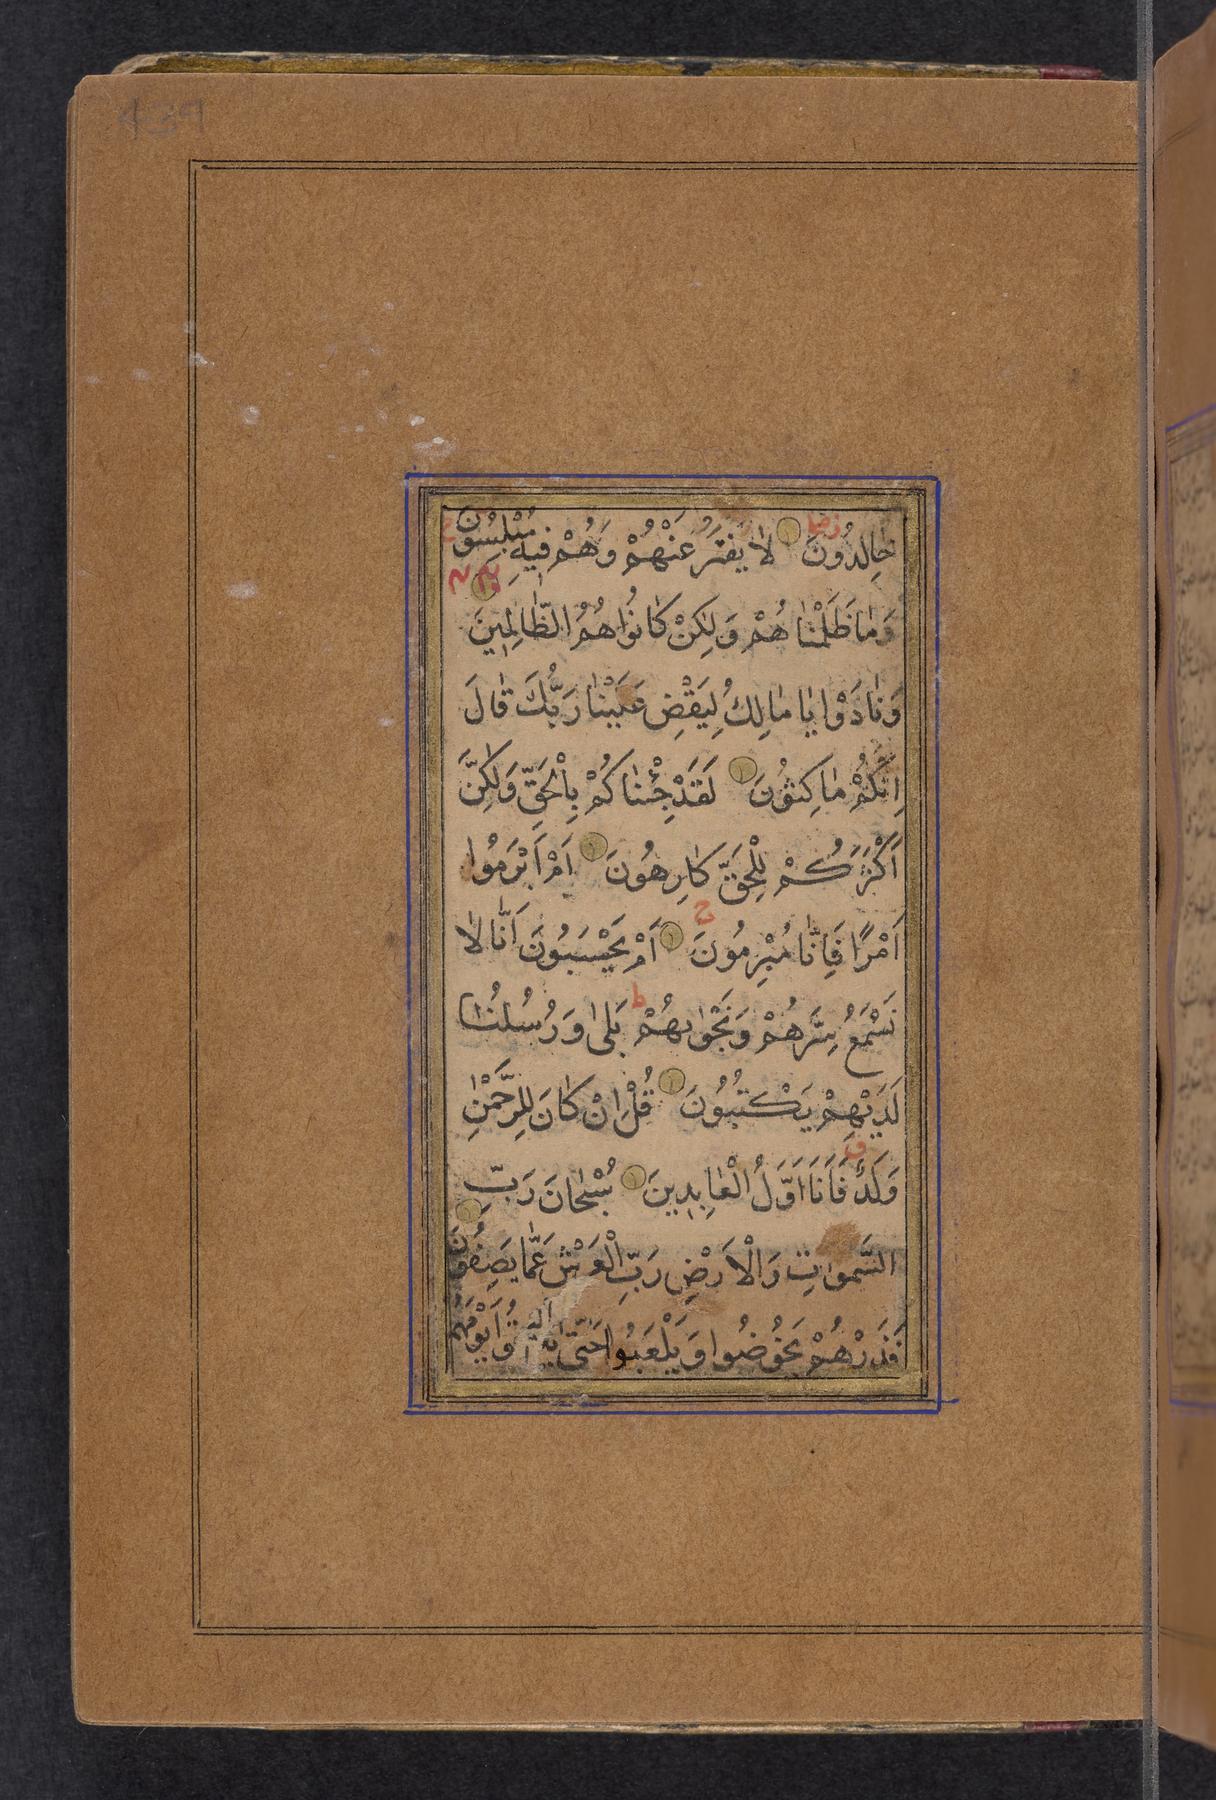 439
خٰالِدُونَ لٰا يُفَتَّرُ عَنْهُمْ وَهُمْ فيهِ مُبْلِسُونَ
وَمٰا ظَلَمْنٰاهُمْ وَلٰكِنْ كٰانُوا هُمُ الظّٰالِمينَ
وَنٰادَوْا يٰا مٰالِكُ لِيَقْضِ عَلَيْنٰا رَبُّكَ قٰالَ
اِنَّكُمْ مٰاكِثُونَ لَقَدْ جِئْنٰاكُمْ بِالْحَقِّ وَلٰكِنَّ
اَكْثَرَكُمْ لِلْحَقِّ كٰارِهُونَ اَمْ اَبْرَمُوا
اَمْرًا فَاِنّٰا مُبْرِمُونَ اَمْ يَحْسَبُونَ اَنّٰا لٰا
نَسْمَعُ سِرَّهُمْ وَنَجْوٰيهُمْ بَلىٰ وَرُسُلُنٰا
لَدَيْهِمْ يَكْتُبُونَ قُلْ اِنْ كٰانَ لِلرَّحْمٰنِ
وَلَدٌ فَاَنَا اَوَّلُ الْعٰابِدينَ سُبْحٰانَ رَبِّ
السَّمٰوٰاتِ وَالْاَرْضِ رَبِّ الْعَرْشِ عَمّٰا يَصِفُونَ
فَذَرْهُمْ يَخُوضُوا وَيَلْعَبُوا حَتّىٰ يُلٰاقُوا يَوْمَهُمُ